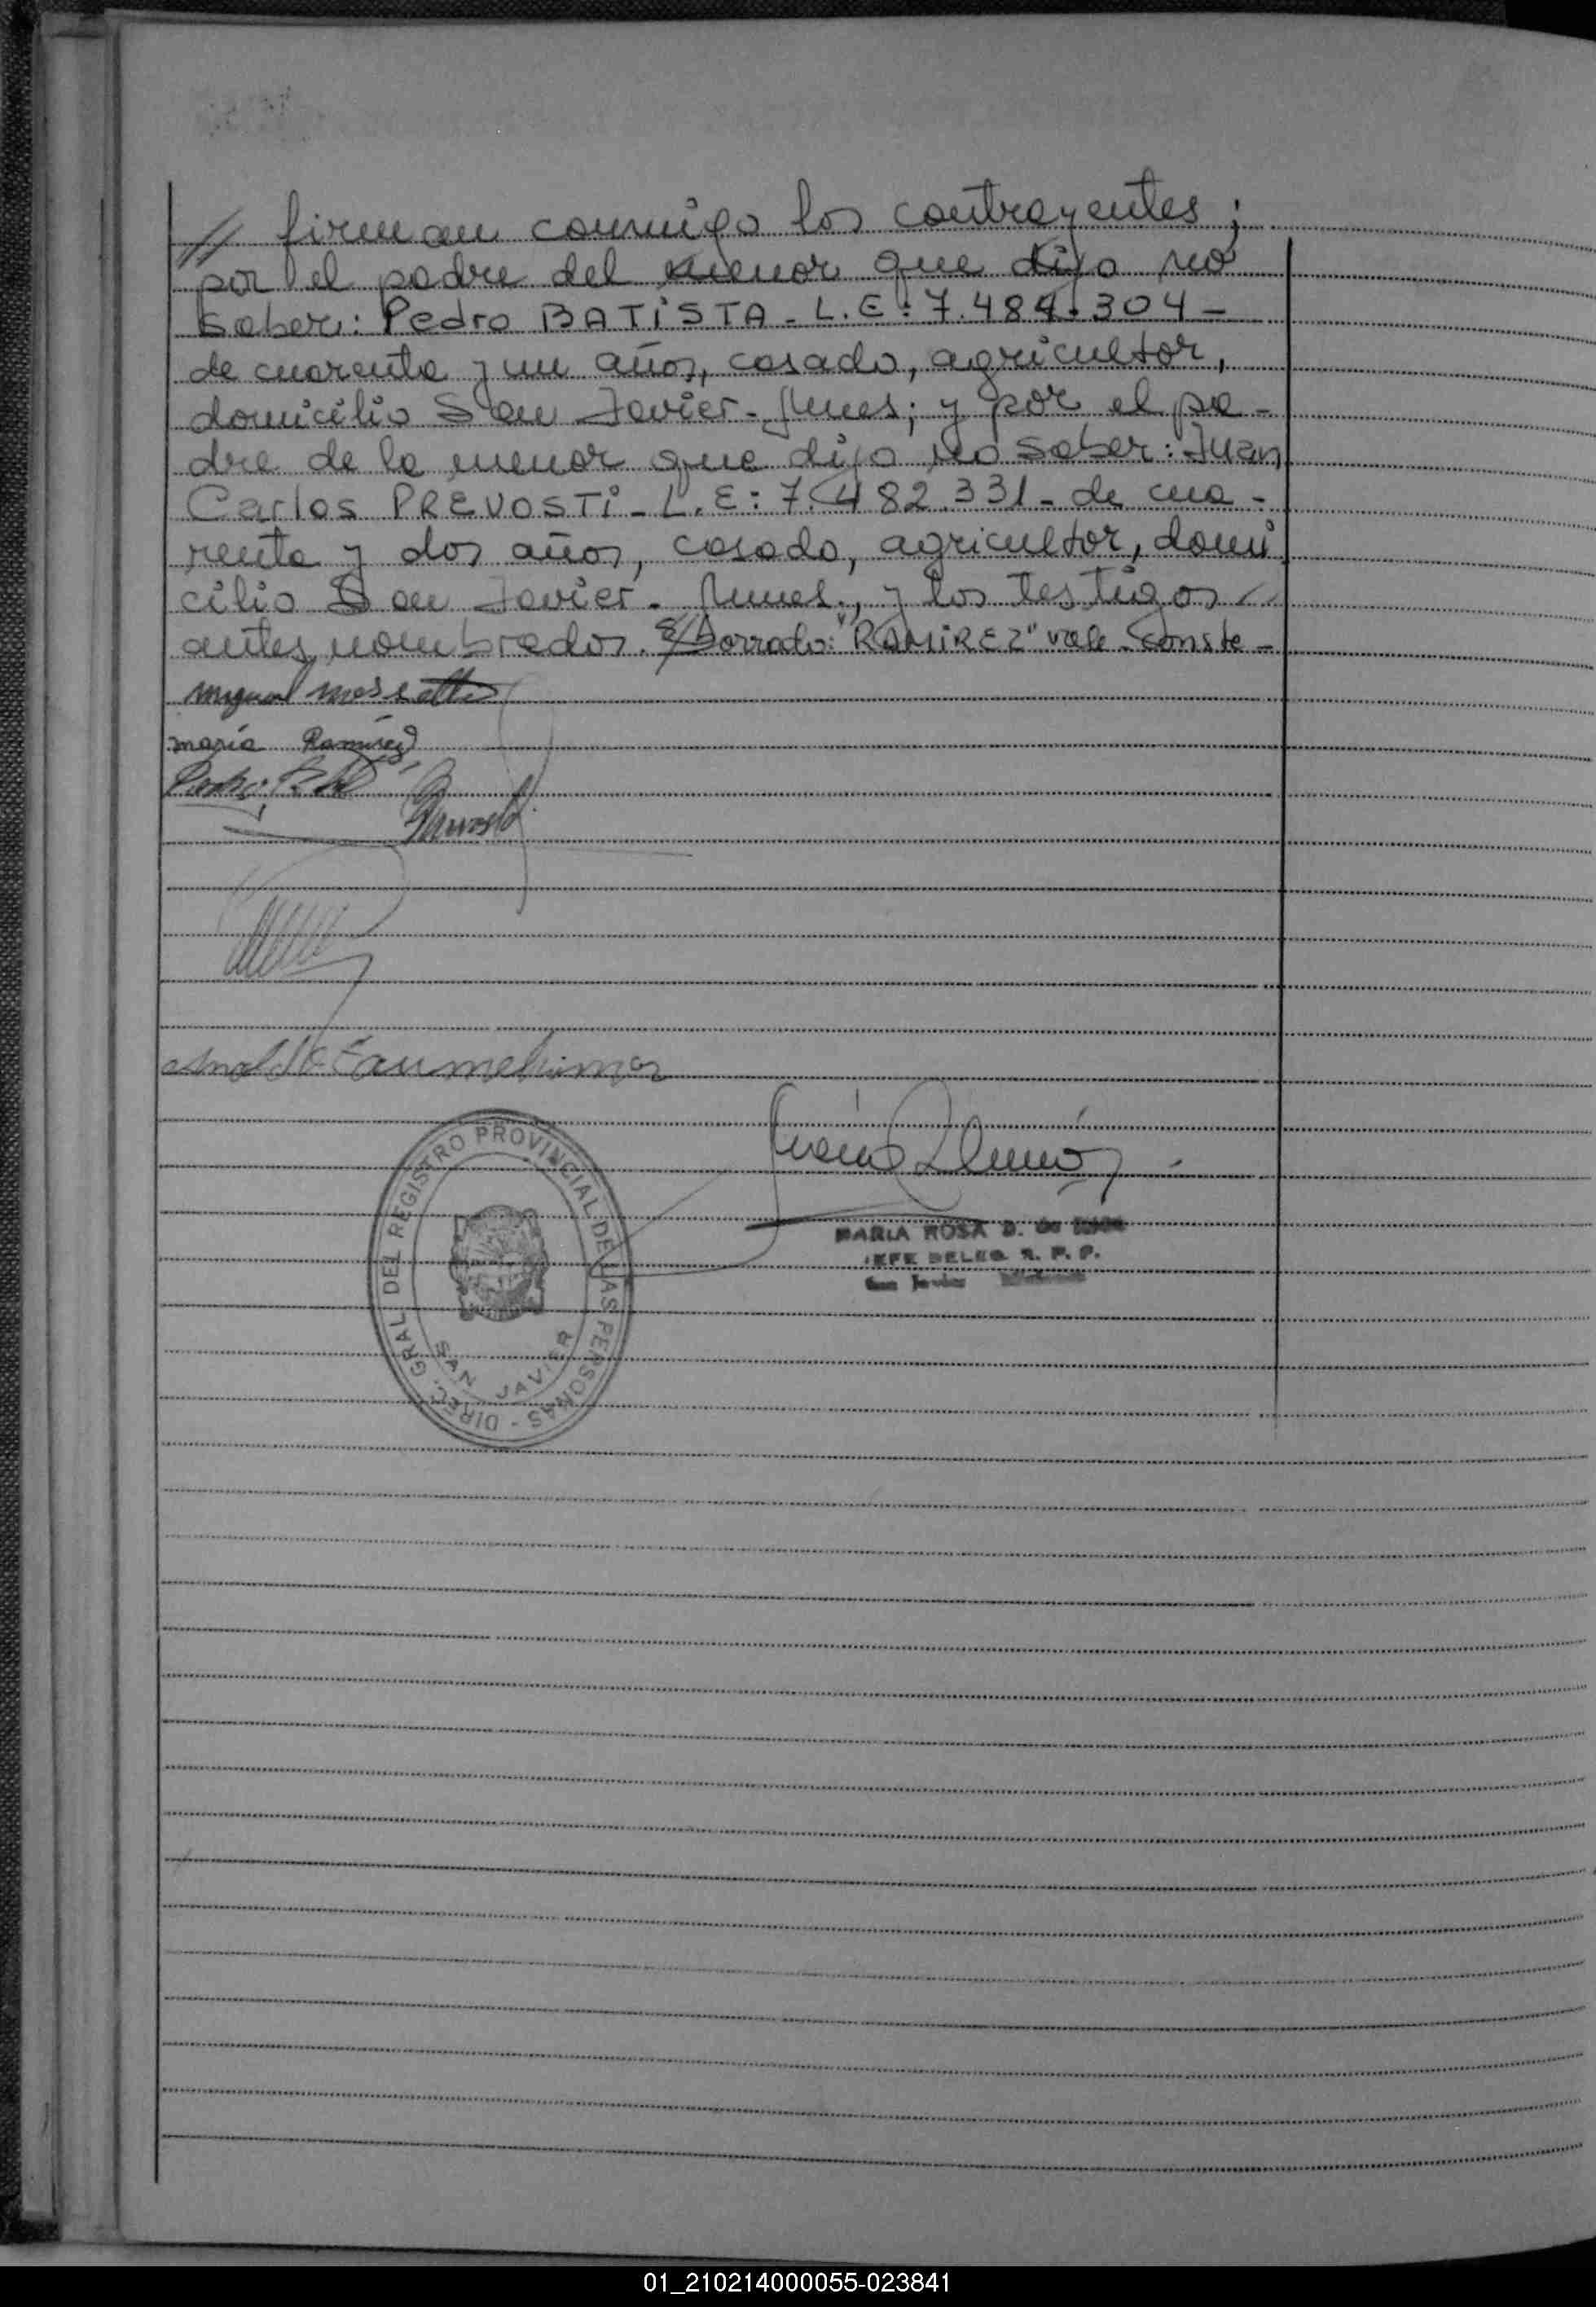 // firman conmigo los contrayentes;
por el padre del menor que dijo no
saber: Pedro BATiSTA - L.E: 7.484.304 -
de cuarenta y un años, casado, agricultor,
domicilio San Javier - Mnes; y por el pa-
dre de la menor que dijo no saber: Juan
Carlos PREVOSTi - L.E: 7.482.331 - de cua-
renta y dos años, casado, agricultor, domi
cilio San Javier - Mnes., y los testigos
antes nombrados. S/borrado: "RAMIREZ" vale. Conste -
Miguel
maria Ramirez
Pedro
Prevosti
DIREC. GRAL. DEL REGISTRO PROVINCIAL DE LAS PERSONAS -
SAN JAVIER
MARIA ROSA D. de
JEFE DELEG. R. P. P.
San Javier Misiones
01_210214000055-023841